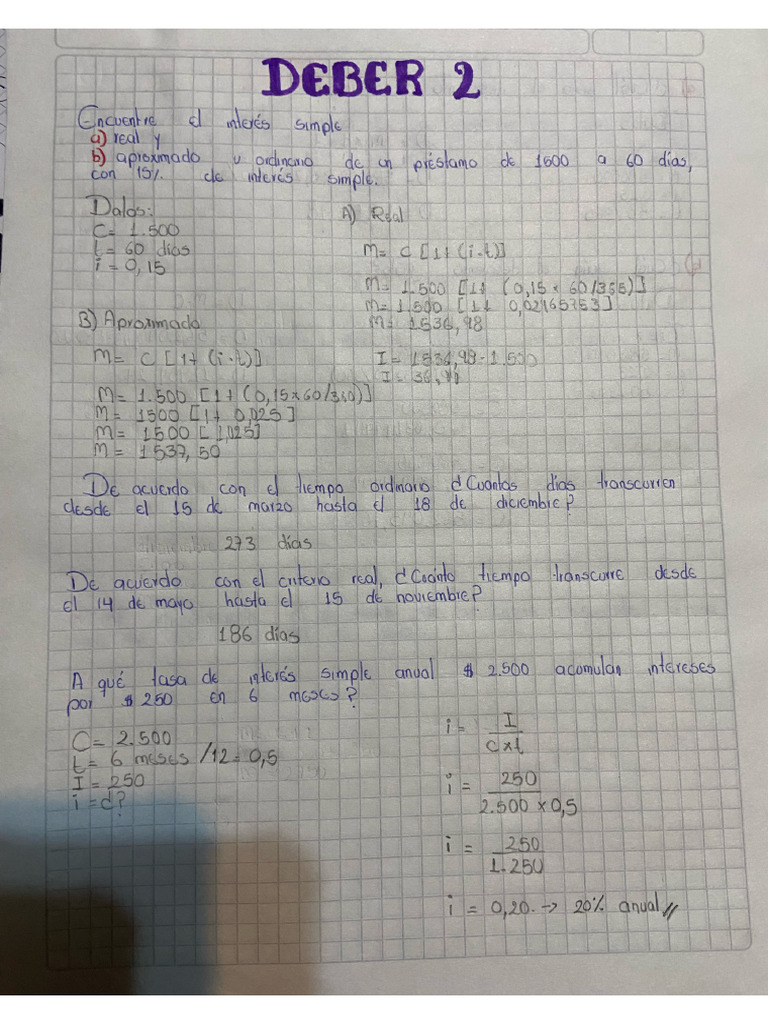 DEBER 2
Encuentre el interés simple
a) real y
b) aproximado u ordinario de un préstamo de 1500 a 60 días,
con 15% de interés simple.
Datos:
C= 1.500
t= 60 días
i= 0,15
A) Real
M= C [1+(i.t)]
M= 1.500 [1+ (0,15 x 60/365)]
M= 1.500 [1+ 0,02465753]
M= 1536,98
I= 1536,98-1.500
I= 36,98
B) Aproximado
M= C [1+ (i.t)]
M= 1.500 [1+(0,15x60/360)]
M= 1500 [1+ 0,025]
M= 1500 [1,025]
M= 1537,50
De acuerdo con el tiempo ordinario ¿Cuantos días transcurren
desde el 15 de marzo hasta el 18 de diciembre?
273 días
De acuerdo con el criterio real, ¿Cuánto tiempo transcurre desde
el 14 de mayo hasta el 15 de noviembre?
186 días
A qué tasa de interés simple anual $ 2.500 acumulan intereses
por $ 250 en 6 meses?
C= 2.500
t= 6 meses /12= 0,5
I= 250
i=¿?
i= I
Cxt
i= 250
2.500 x 0,5
i= 250
1.250
i= 0,20.→ 20% anual//